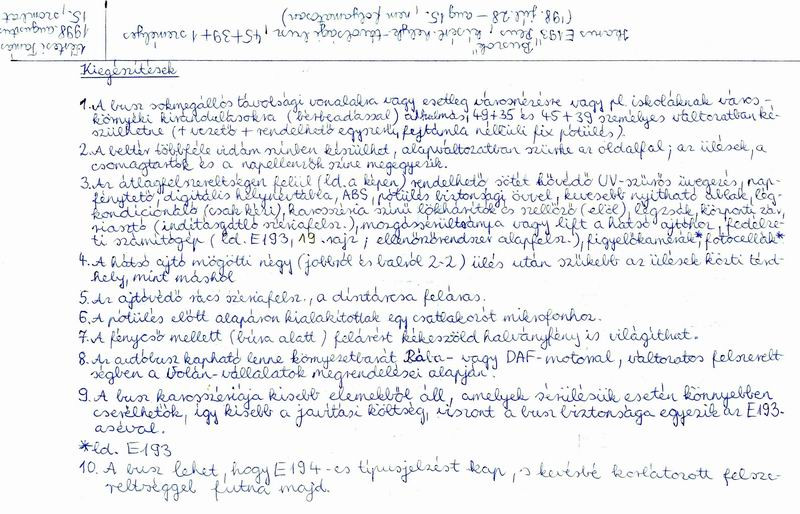 Ikarus E193 Plus, kisérő helyk-távolsági busz, 45+39+1 személyes
"Buszok"
('98. júl. 28 – aug. 15., nem folyamatosan)
1998. augusztus
15., szombat
Kiegészítések
1. A busz sokmegállós távolsági vonalakra vagy esetleg városnézésre vagy pl. iskoláknak város-
környéki kirándulásokra (bérbeadással) alkalmas, 49+35 és 45+39 személyes változatban ké-
szülhetne (+ vezető + rendelhető egyszerű, fejtámla nélküli fix pótülés).
2. A beltér többféle vidám színben készülhet, alapváltozatban szürke az oldalfal; az ülések, a
csomagtartók és a napellenzők színe megegyezik.
3. Az átlagfelszereltségen felül (ld. a képen) rendelhető sötét hővédő UV-szűrős üvegezés, nap-
fénytető, digitális helynévtábla, ABS, pótülés biztonsági övvel, kevesebb nyitható ablak, lég-
kondicionáló (csak kézi), karosszéria színű lökhárítók és szellőző (elöl), légzsák, központi zár,
riasztó (indításgátló szériafelsz.), mozgássérültrámpa vagy lift a hátsó ajtóhoz, fedélze-
ti számítógép (ld. E193, 19. rajz; ellenőrzőrendszer alapfelsz.), figyelőkamerák* fotocellák*
4. A hátsó ajtó mögötti négy (jobbról és balról 2-2) ülés után szűkebb az ülések közti térd-
hely, mint máshol
5. Az ajtóvédő rács szériafelsz., a dísztárcsa feláras.
6. A pótülés előtt alapáron kialakítottak egy csatlakozót mikrofonhoz.
7. A fénycső mellett (búra alatt) felárért kékeszöld halványfény is világíthat.
8. Az autóbusz kapható lenne környezetbarát Rába- vagy DAF-motorral, változatos felszerelt-
ségben a Volán-vállalatok megrendelései alapján.
9. A busz karosszériája kisebb elemekből áll, amelyek sérülésük esetén könnyebben
cserélhetők, így kisebb a javítási költség, viszont a busz biztonsága egyezik az E193-
aséval.
*ld. E193
10. A busz lehet, hogy E194-es típusjelzést kap, s kevésbé korlátozott felsze-
reltséggel futna majd.